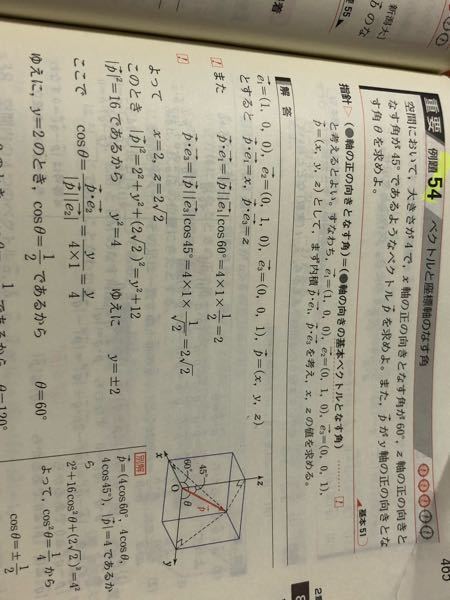 重要 例題 54 ベクトルと座標軸のなす角
空間において，大きさが4で，x軸の正の向きとなす角が60°，z軸の正の向きと
なす角が45°であるようなベクトルp→を求めよ。また，p→がy軸の正の向きとな
す角θを求めよ。
基本51
指針 (●軸の正の向きとなす角)＝(●軸の向きの基本ベクトルとなす角) …… !
と考えるとよい。すなわち，e₁→=(1, 0, 0), e₂→=(0, 1, 0), e₃→=(0, 0, 1),
p→=(x, y, z) として，まず内積 p→・e₁→, p→・e₃→ を考え，x, z の値を求める。
解答
e₁→=(1, 0, 0), e₂→=(0, 1, 0), e₃→=(0, 0, 1), p→=(x, y, z)
とすると p→・e₁→=x, p→・e₃→=z
! また p→・e₁→=|p→||e₁→|cos60°=4×1×1/2=2
! p→・e₃→=|p→||e₃→|cos45°=4×1×1/√2=2√2
よって x=2, z=2√2
このとき |p→|²=2²+y²+(2√2)²=y²+12
|p→|²=16であるから y²=4 ゆえに y=±2
ここで cosθ=p→・e₂→/|p→||e₂→|=y/4×1=y/4
ゆえに，y=2のとき，cosθ=1/2 であるから θ=60°
であるから θ=120°
z
45°
60°
p→
θ
O
x
y
別解
p→=(4cos60°, 4cosθ,
4cos45°), |p→|=4であるか
ら
2²+16cos²θ+(2√2)²=4²
よって，cos²θ=1/4 から
cosθ=±1/2
465
新潟大]